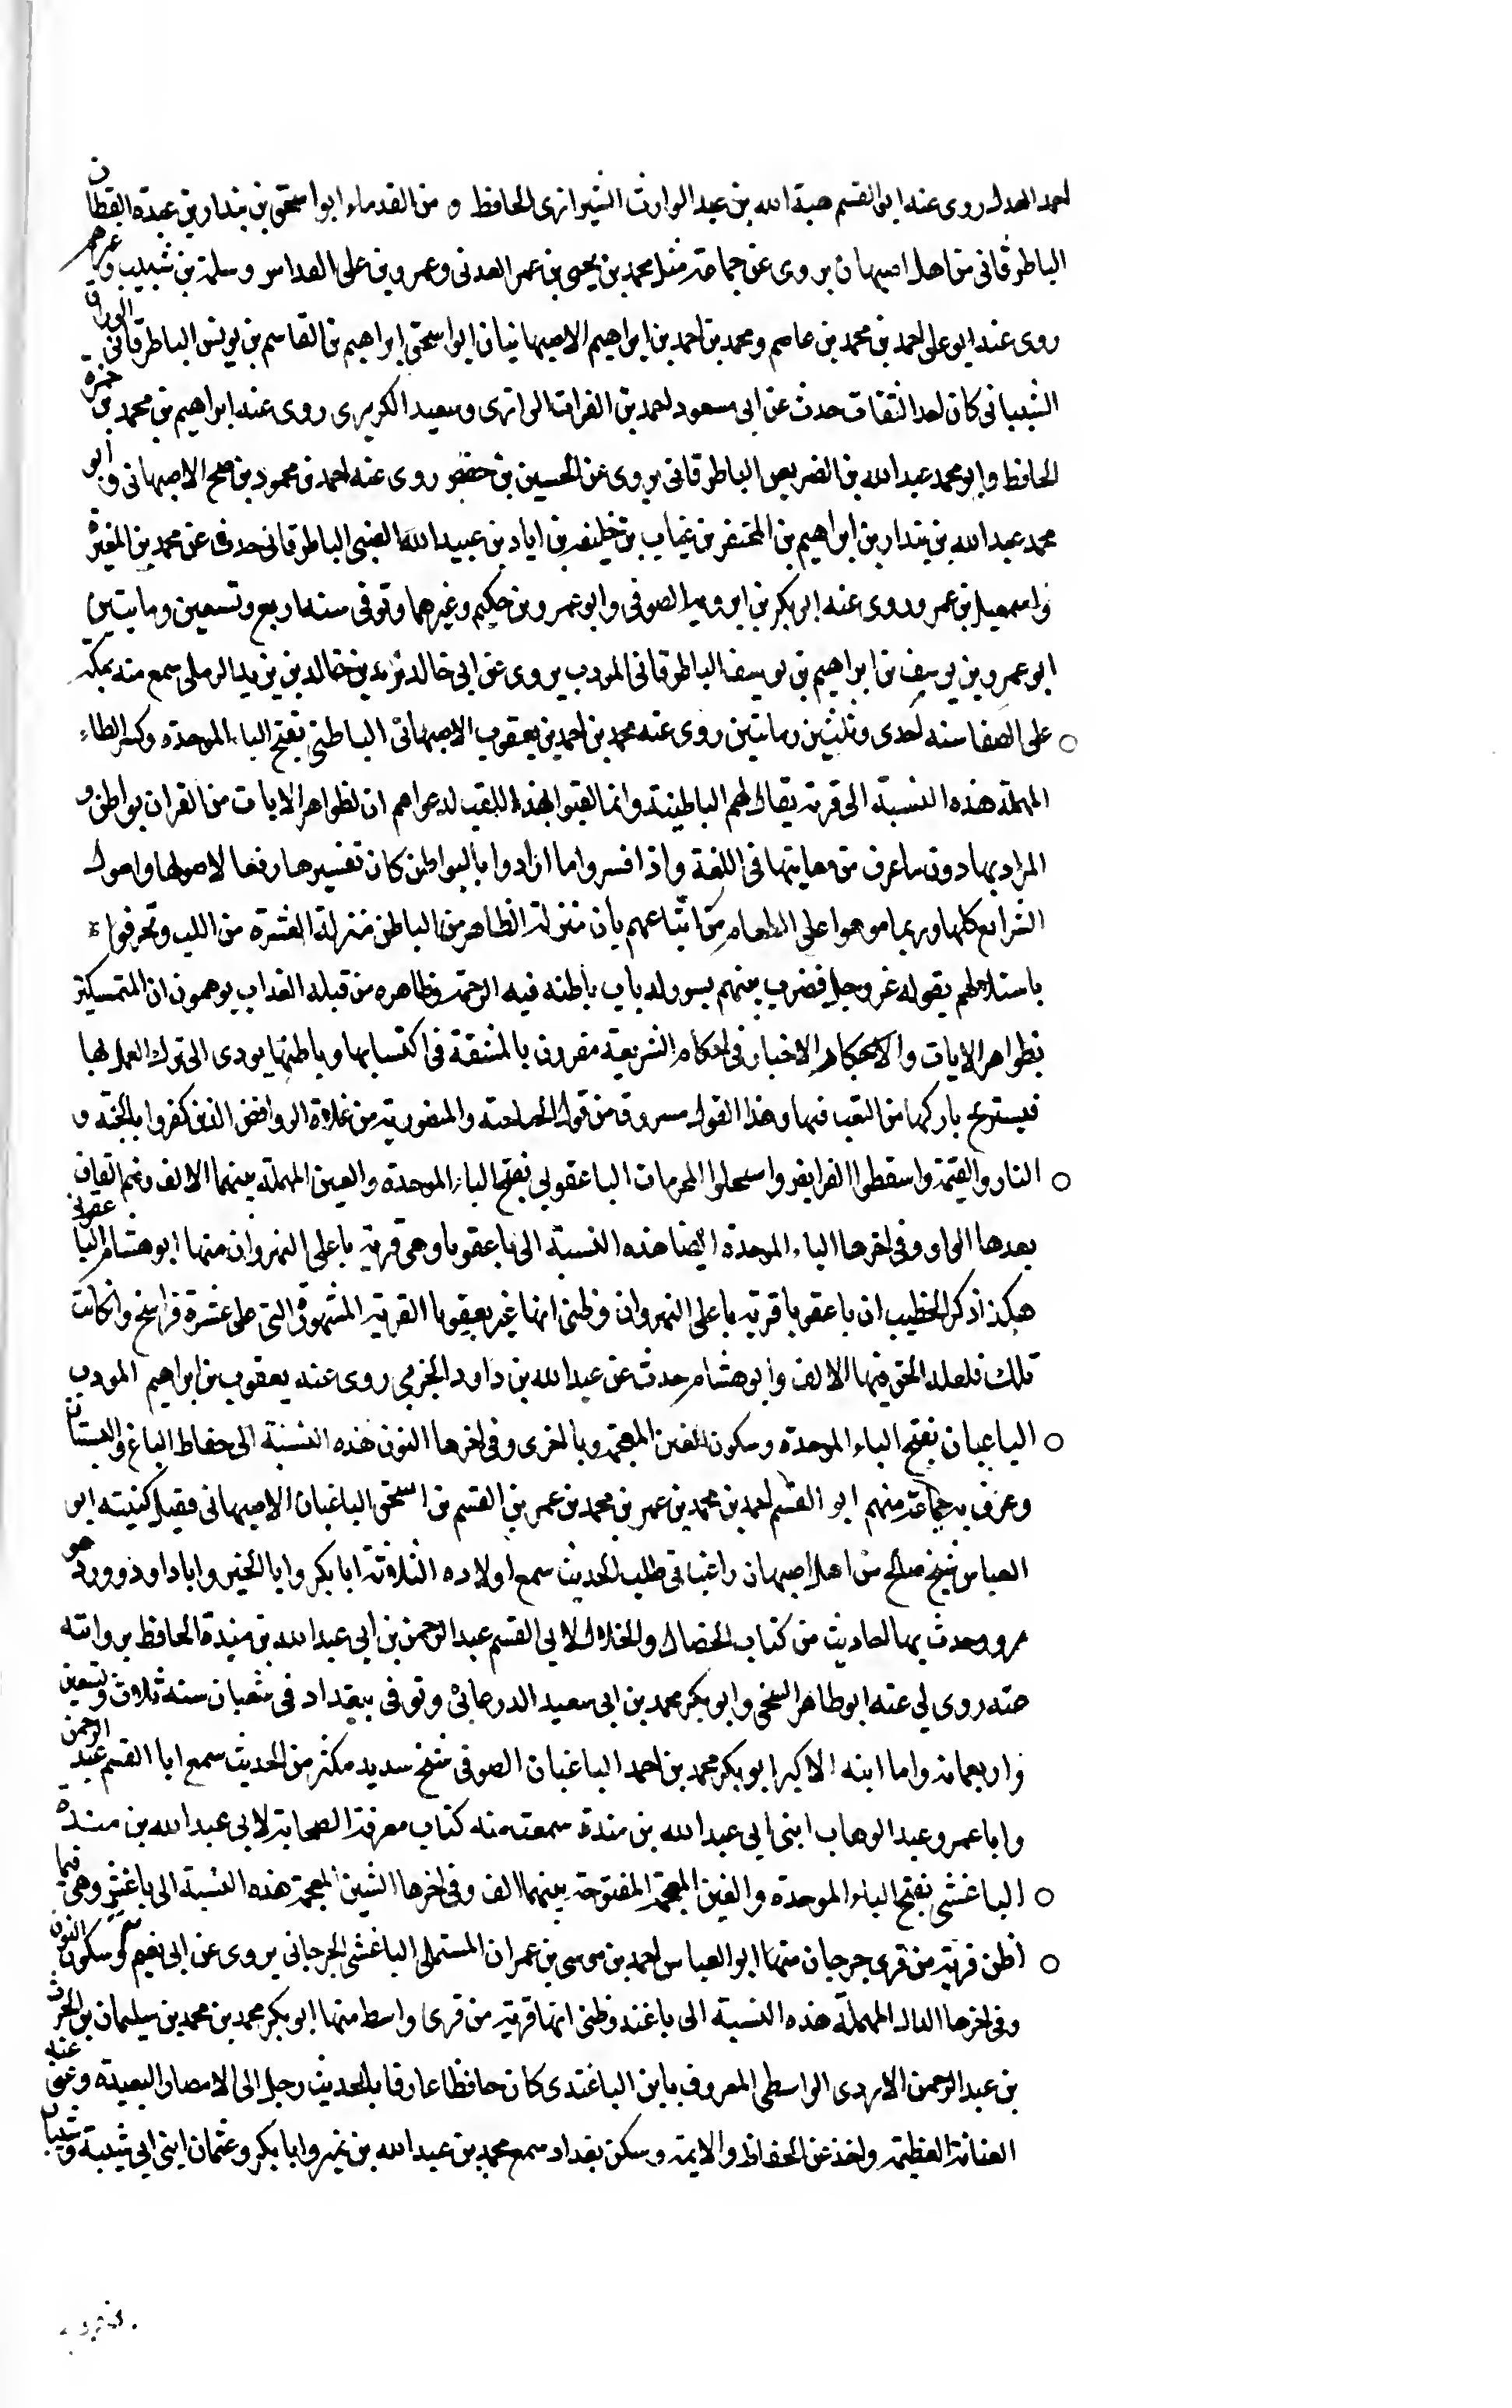 احمد العدل روى عنه ابى القسم هبة الله بن عبد الوارث الشيرازى الحافظ و من القدماء ابو اسحق بن بندار بن عبدة القطان
الباطرقانى من اهل اصبهان يروى عن جماعة مثل محمد بن يحيى بن عمر العدنى وعمرو بن على الفداس وسلمة بن شبيب وغيرهم
روى عنه ابو على احمد بن محمد بن عاصم ومحمد بن احمد بن ابراهيم الاصبهانيان ابو اسحق ابراهيم بن القاسم بن يونس الباطرقانى الوراق
الشيبانى كان احد الثقات حدث عن ابى مسعود احمد بن الفرات الرازى وسعيد الكريرى روى عنه ابراهيم بن محمد بن حمزة
الحافظ وابو محمد عبد الله بن الضريس الباطرقانى يروى عن الحسين بن حفص روى عنه احمد بن محمود بن صلح الاصبهانى وابو
محمد عبد الله بن بندار بن ابراهيم بن المحتفر بن عتاب بن خليفة بن اياد بن عبيد الله الضبى الباطرقانى حدث عن محمد بن المغيرة
واسمعيل بن عمرو روى عنه ابو بكر بن ابرويه الصوفى وابو عمرو بن حكيم وغيرهما وتوفى سنة اربع وتسعين ومايتين
ابو عمرو بن يوسف بن ابراهيم بن يوسف الباطرقانى المودب يروى عن ابى خالد يزيد بن خالد بن يزيد الرملى سمع منه بمكة
على الصفا سنه احدى وثلثين ومايتين روى عنه محمد بن احمد بن يعقوب الاصبهانى الباطنى بفتح الباء الموحدة وكسر الطاء
المهملة هذه النسبة الى فرقة يقال لهم الباطينة وانما لقبوا بهذه اللقب لدعواهم ان لظواهر الايات من القران بواطن و
المراد بها دون ما عرف من معانيها فى اللغة واذا فسروا ما ارادوا بالبواطن كان تفسيرها رفعا لاصولها واصول
الشرايع كلها وربما موهوا على الطعام من اتباعهم بان منزلة الظاهر من الباطن منزلة القشرة من اللب وتحرفوا
باستدلالهم بقوله عز وجل فضرب بينهم بسور له باب باطنه فيه الرحمة وظاهره من قبله العذاب يوهمون ان المتمسكين
بظواهر الايات والاحكام الاخبار فى احكام الشريعة مقرون بالمشقة فى اكتسابها وباطنها يودى الى ترك العمل بها
فيستريح تاركها من التعب فيها وهذا القول مسروق من قول الجناحية والمنصورية من غلاة الروافض الذين كفروا بالجنة و
النار والقيمة واسقطوا الفرايض واستحلوا المحرمات الباعقوبى بفتح الباء الموحدة والعين المهملة بينهما الالف وضم القاف
بعدها الواو وفى اخرها الباء الموحدة ايضا هذه النسبة الى باعقوبا وهى قرية باعلى النهروان منها ابو هشام الباعقوبى
هكذا ذكر الخطيب ان باعقوبا قرية باعلى النهروان وظنى انها غير بعقوبا القرية المشهورة التى على عشرة فراسخ وان كانت
تلك فلعله الحق فيها الالف وابو هشام حدث عن عبد الله بن داود الخريبى روى عنه يعقوب بن ابراهيم المودب
الباغبان بفتح الباء الموحدة وسكون الغين المعجمة وبا اخرى وفى اخرها النون هذه النسبة الى حفاظ الباغ والبستان
وعرف به جماعة منهم ابو القسم احمد بن محمد بن عمر بن محمد بن عمر بن القسم بن اسحق الباغبان الاصبهانى فقيل كنيته ابو
العباس شيخ صالح من اهل اصبهان راغبا فى طلب الحديث سمع اولاده الثلاثة ابا بكر وابا الخير وابا داود وورد هو
مرو وحدث بها احاديث من كتاب الخصال والخلال لابى القسم عبد الرحمن بن ابى عبد الله بن مندة الحافظ بروايته
عنه روى لى عنه ابو طاهر السنجى وابو بكر محمد بن ابى سعيد الدرعانى وتوفى ببغداد فى شعبان سنة ثلاث وتسعين
واربعماية واما ابنه الاكبر ابو بكر محمد بن احمد الباغبان الصوفى شيخ سديد مكثر من الحديث سمع ابا القسم عبد الرحمن
وابا عمرو عبد الوهاب ابنى ابى عبد الله بن مندة سمعت منه كتاب معرفة الصحابة لابى عبد الله بن مندة
الباغشى بفتح الباء الموحدة والغين المعجمة المفتوحة بينهما الف وفى اخرها الشين المعجمة هذه النسبة الى باغش وهى فيما
اظن قرية من قرى جرجان منها ابو العباس احمد بن موسى بن عمران المستملى الباغشى الجرجانى يروى عن ابى نعيم وسكون النون
وفى اخرها الدال المهملة هذه النسبة الى باغند وظنى انها قرية من قرى واسط منها ابو بكر محمد بن محمد بن سليمان بن الحرث
بن عبد الرحمن الازدى الواسطى المعروف بابن الباغندى كان حافظا عارفا بالحديث رحل الى الامصار البعيدة وعنى عنه
العناية العظيمة واخذ عن الحفاظ والايمة وسكن بغداد سمع محمد بن عبد الله بن نمير وابا بكر وعثمان ابنى ابى شيبة وشيبان